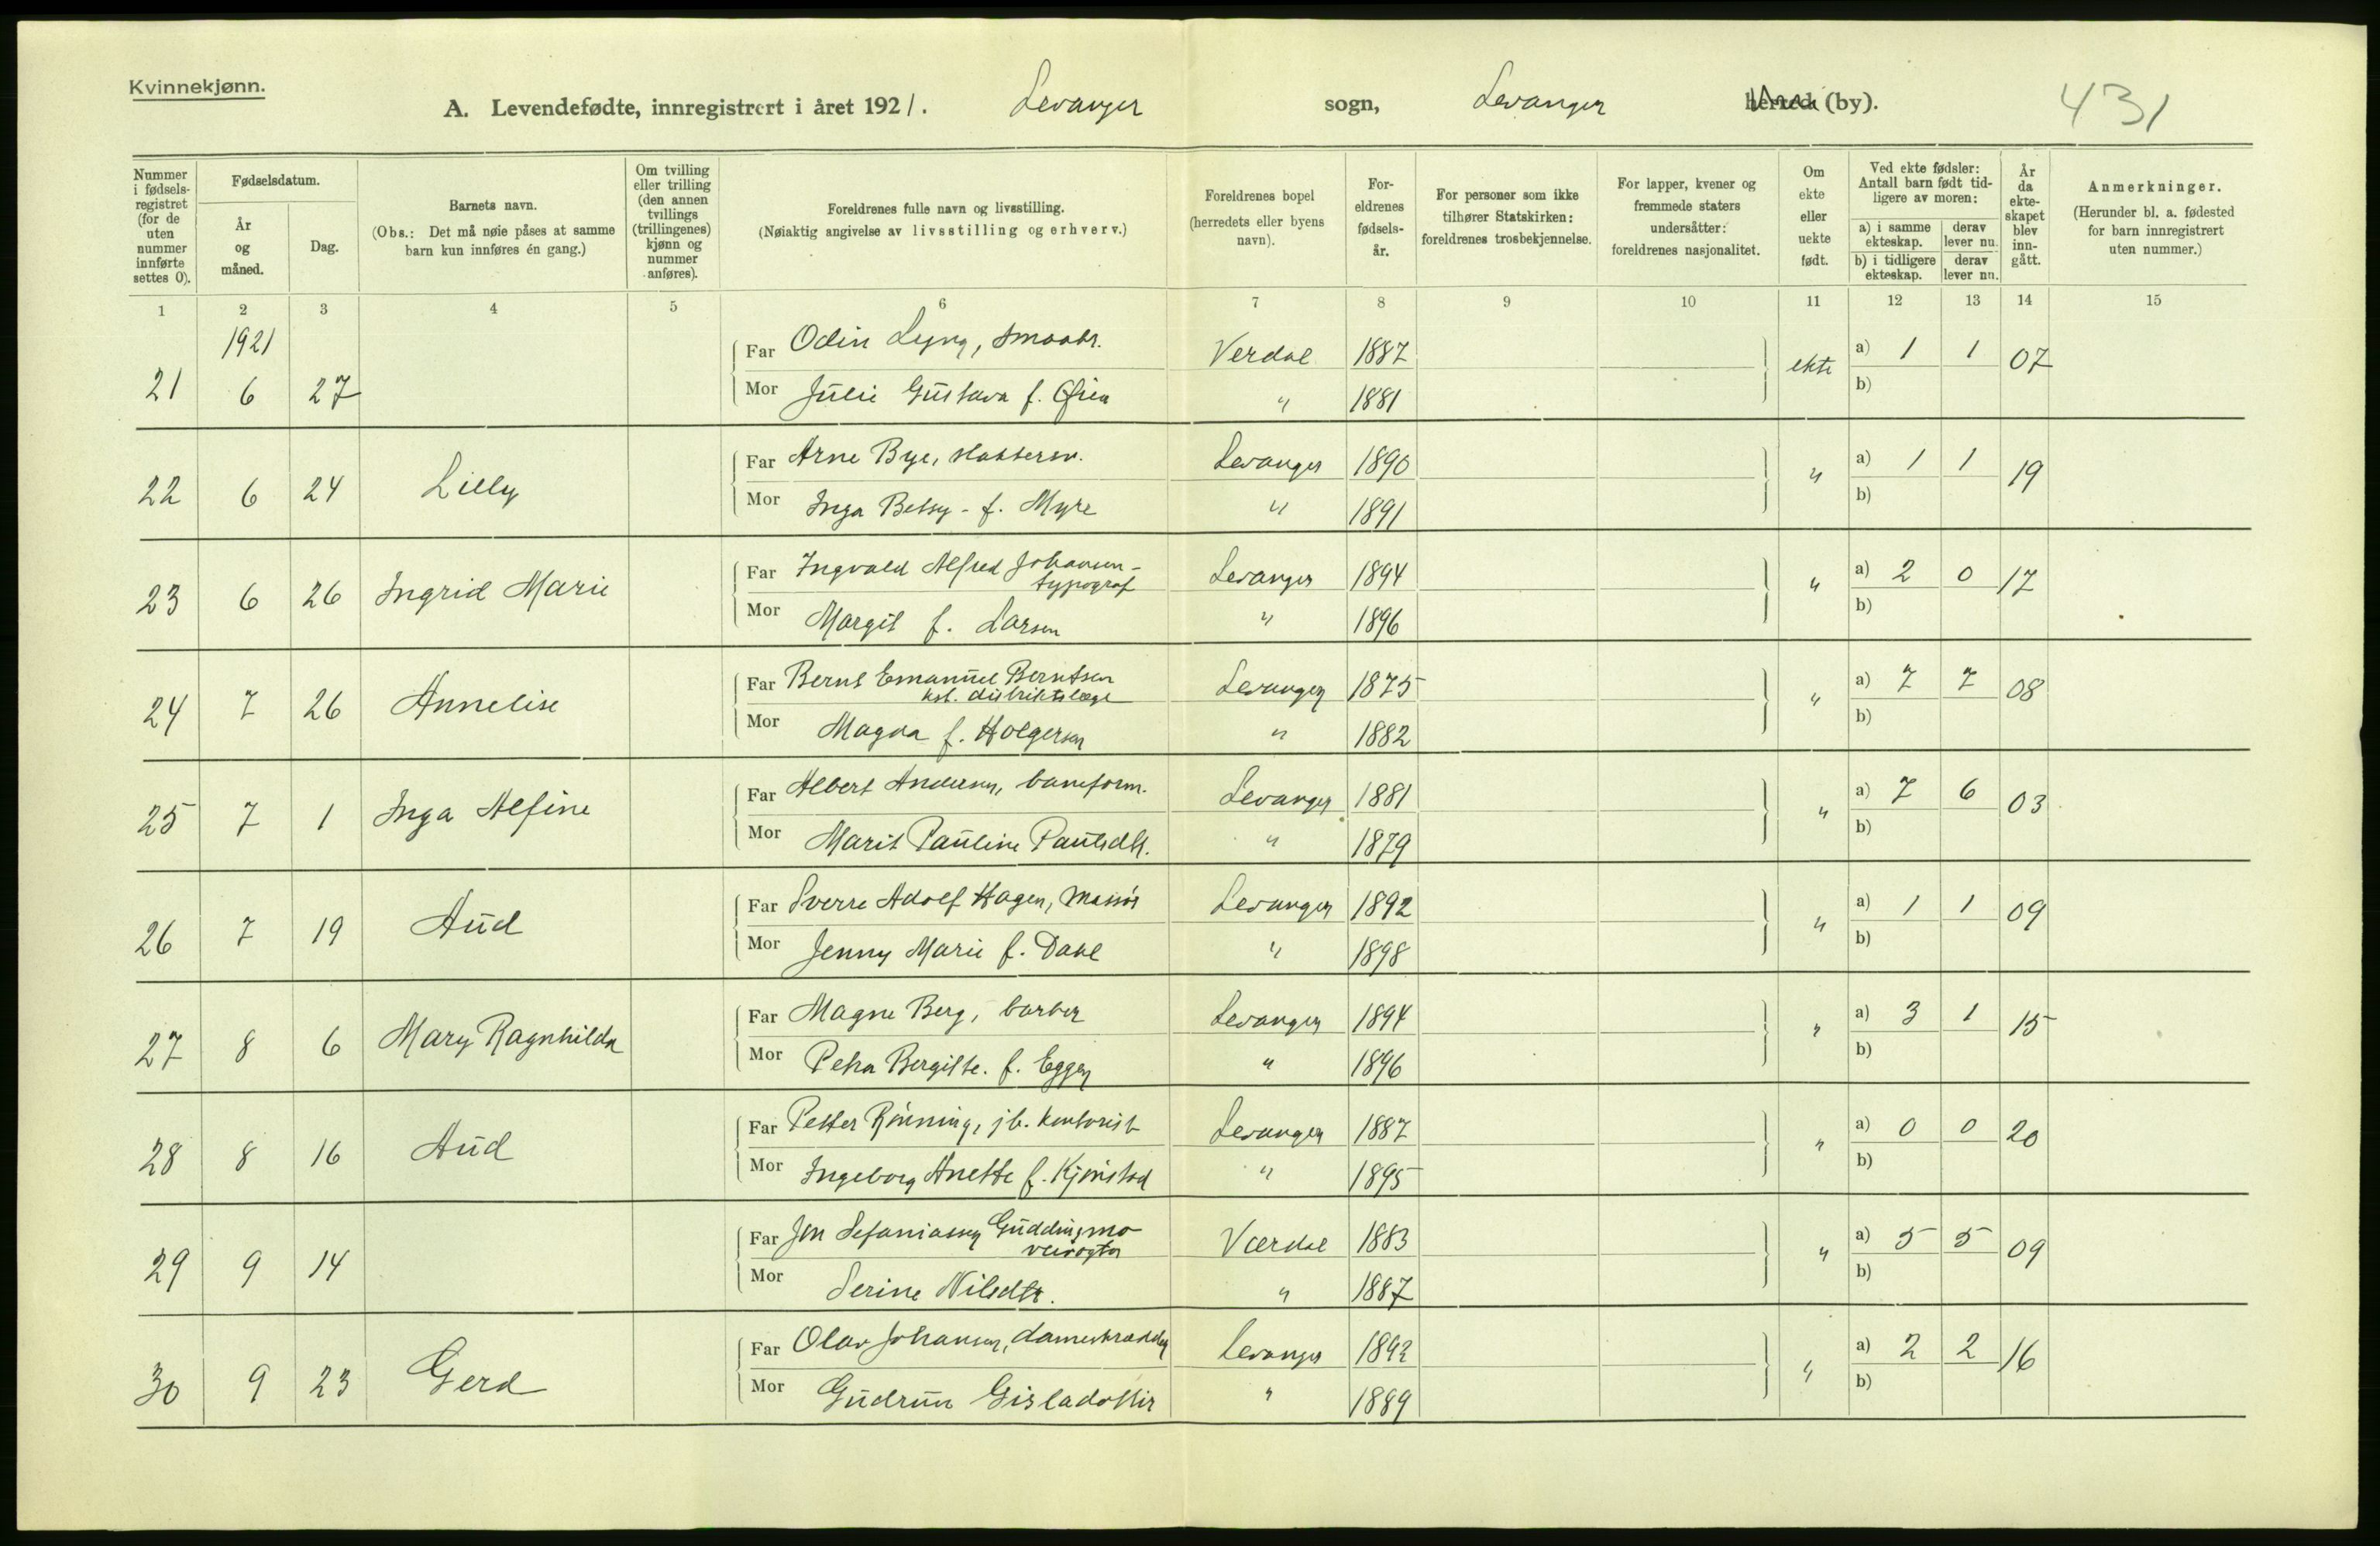 Kvinnekjønn.
A. Levendefødte, innregistrert i året 1921. Levanger sogn, Levanger herred (by). 431
Nummer i fødselsregistret (for de uten nummer innførte settes 0).
Fødselsdatum.
År og måned.
Dag.
Barnets navn.
(Obs.: Det må nøie påses at samme barn kun innføres én gang.)
Om tvilling eller trilling (den annen tvillings (trillingenes) kjønn og nummer anføres).
Foreldrenes fulle navn og livsstilling.
(Nøiaktig angivelse av livsstilling og erhverv.)
Foreldrenes bopel (herredets eller byens navn).
Foreldrenes fødselsår.
For personer som ikke tilhører Statskirken: foreldrenes trosbekjennelse.
For lapper, kvener og fremmede staters undersåtter: foreldrenes nasjonalitet.
Om ekte eller uekte født.
Ved ekte fødsler: Antall barn født tidligere av moren:
a) i samme ekteskap.
derav lever nu.
b) i tidligere ekteskap.
derav lever nu.
År da ekteskapet blev inngått.
Anmerkninger.
(Herunder bl. a. fødested for barn innregistrert uten nummer.)
1 2 3 4 5 6 7 8 9 10 11 12 13 14 15
1921
Far Odin Lyng, smaabr. Verdal 1887 ekte a) 1 1 07
21 6 27 Mor Julie Gustava f. Øien " 1881 b)
Far Arne Bye, slaktersv. Levanger 1890 " a) 1 1 19
22 6 24 Lilly Mor Inga Betsy - f. Myre " 1891 b)
Far Ingvald Alfred Johansen - typograf Levanger 1894 " a) 2 0 17
23 6 26 Ingrid Marie Mor Margit f. Larsen " 1896 b)
Far Bernt Emanuel Berntsen kst. distriktslæge Levanger 1875 " a) 7 7 08
24 7 26 Annelise Mor Magda f. Holgersen " 1882 b)
Far Albert Andersen, baneform. Levanger 1881 " a) 7 6 03
25 7 1 Inga Alfine Mor Marit Pauline Paulsdtr. " 1879 b)
Far Sverre Adolf Hagen, massør Levanger 1892 " a) 1 1 09
26 7 19 Aud Mor Jenny Marie f. Dahl " 1898 b)
Far Magne Berg, barber Levanger 1894 " a) 3 1 15
27 8 6 Mary Ragnhilda Mor Petra Bergitte. f. Eggen " 1896 b)
Far Petter Rønning, jb. kontorist Levanger 1887 " a) 0 0 20
28 8 16 Aud Mor Ingeborg Anette f. Kjønstad " 1895 b)
Far Jon Sefaniassen Guddingsmo veivogter Værdal 1883 " a) 5 5 09
29 9 14 Mor Serine Nilsdtr. " 1887 b)
Far Olav Johansen, dameskrædder Levanger 1892 " a) 2 2 16
30 9 23 Gerd Mor Gudrun Gisladottir " 1889 b)